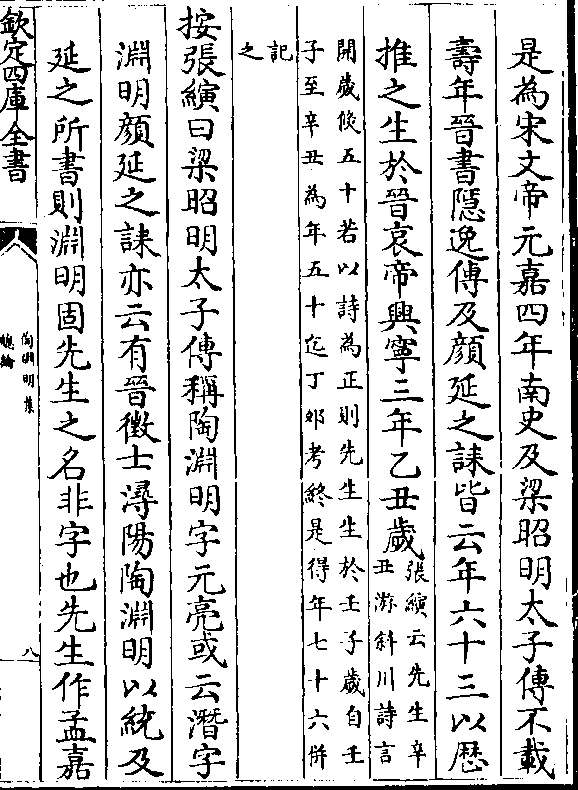 是為宋文帝元嘉四年南史及梁昭明太子傳不載
壽年晉書隱逸傳及顏延之誄皆云年六十三以歴
推之生於晉哀帝興寧三年乙丑歲張縯云先生辛
丑游斜川詩言
開歲倏五十若以詩為正則先生生於壬子歲自壬
子至辛丑為年五十迄丁卯考終是得年七十六併
記
之
按張縯曰梁昭明太子傳稱陶淵明字元亮或云潛字
淵明顏延之誄亦云有晉徵士潯陽陶淵明以統及
延之所書則淵明固先生之名非字也先生作孟嘉
欽定四庫全書
陶淵明集
總論
八